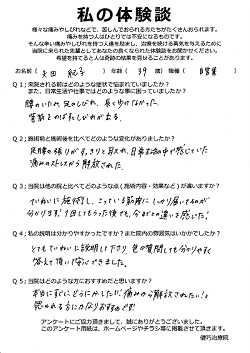 私の体験談
様々な痛みやしびれなどで、苦しんでおられる方たちがたくさんおられます。
痛みを持つ人はひとりでは不安になるものです。
そんな辛い痛みやしびれを持つ人達を励まし、治療を続ける勇気を与えるために
当院に来られた先輩としてあなたの良くなられた体験談をお聞かせください。
希望を持てると人は奇跡の結果を見せられます。
お名前( 太田 紀子 ) 年齢( 39 歳) 職種( 自営業 )
Q1;来院される前はどのような症状で悩まれていましたか?
また、日常生活や仕事ではどのような事に困っていましたか?
腰のいたみ、足のしびれ、長く歩けなかった。
Q2;施術前と施術後を比べてどのような変化がありましたか?
足腰の張りがすっきりと取れ、日常生活の中で感じていた
痛みのストレスから解放された。
Q3;当院は他の院と比べてどのような点(施術内容・効果など)が違いますか?
ていねいに施術し、こっている筋肉にしっかり届いてるのが
分かります。1回してもらった後でも、今までとの違いを感じた。
Q4;私の説明は分かりやすかったですか?また院内の雰囲気はいかがでしたか?
とてもていねいに説明して下さり、色々質問しても分かりやすく
答えて頂いて安心できました。
Q5;当院はどのような方におすすめだと思いますか?
本当にすぐにどうにかしたい!痛みから解放されたい!と
思われる方に良いと思います。
アンケートにご協力頂きまして、誠にありがとうございました。
このアンケート用紙は、ホームページやチラシ等に掲載させて頂きます。
健巧治療院